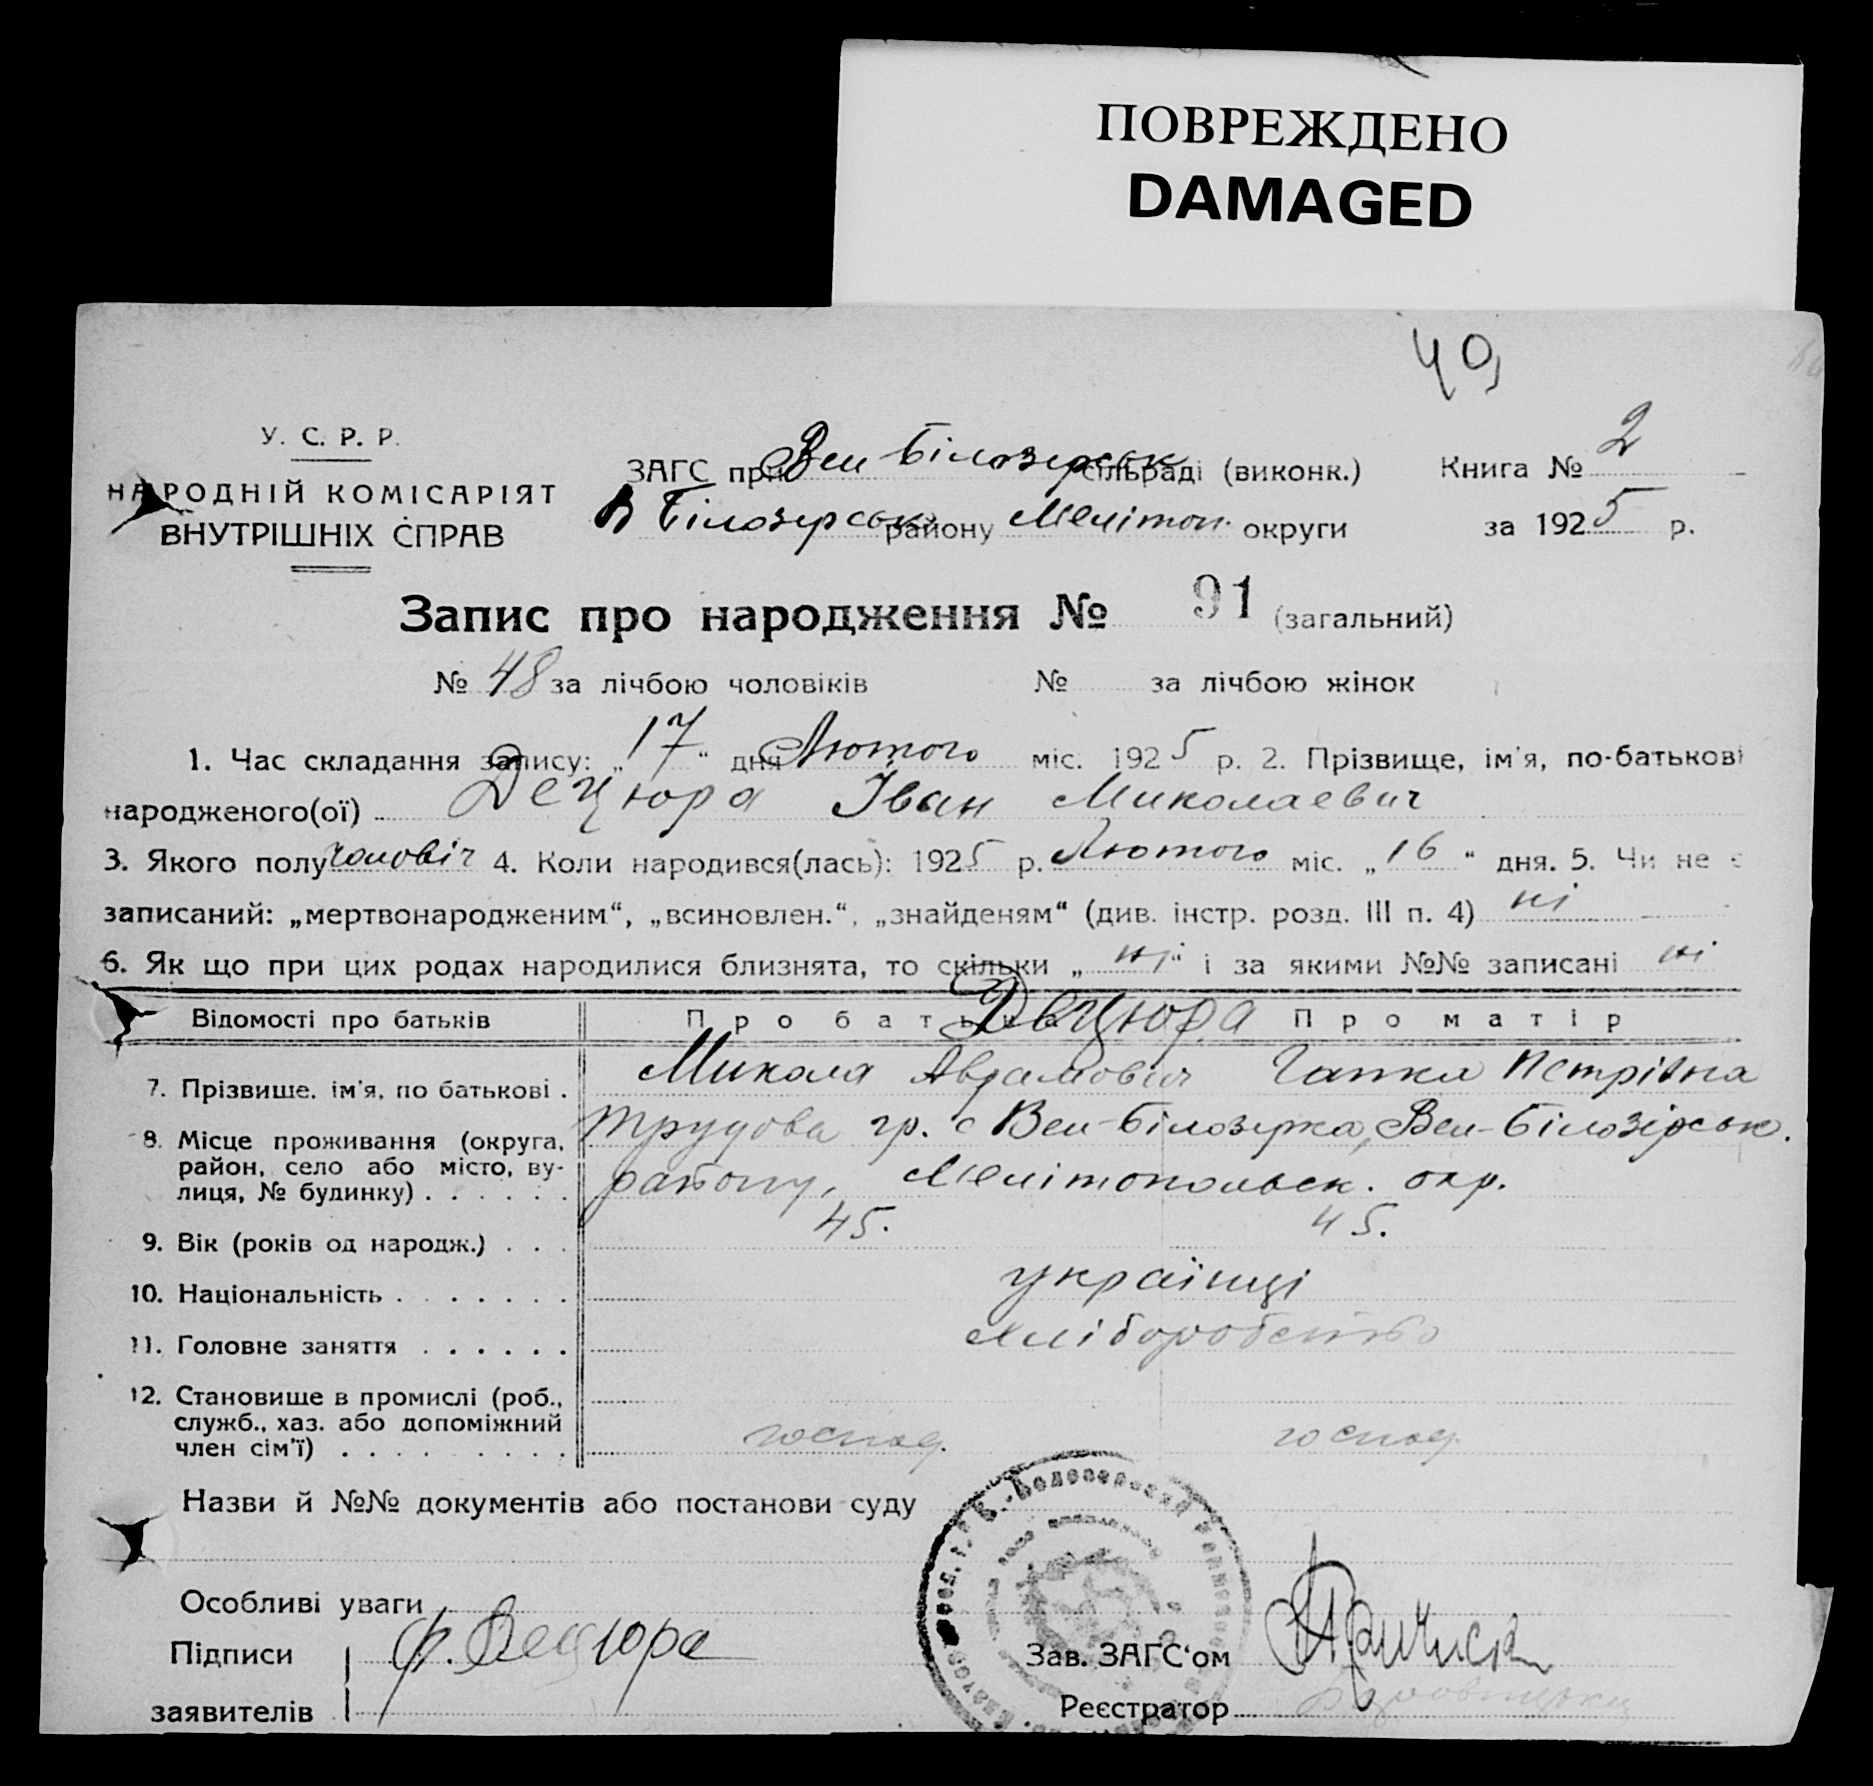 ПОВРЕЖДЕНО
DAMAGED
49
У. С. Р. Р.
НАРОДНІЙ КОМІСАРІЯТ
ВНУТРІШНІХ СПРАВ
ЗАГС при Вел Білозерськ сільраді (виконк.) Книга № 2
В Білозерськ району Меліток. округи за 1925 р.
Запис про народження № 91 (загальний)
№ 48 за лічбою чоловіків № за лічбою жінок
1. Час складання запису: „17“ дня Лютого міс. 1925 р. 2. Прізвище, ім'я, по-батькові
народженого(ої) Децюра Іван Миколаевич
3. Якого полу чоловіч 4. Коли народився(лась): 1925 р. Лютого міс. „16“ дня. 5. Чи не є
записаний: „мертвонародженим“, „всиновлен.“, „знайденям“ (див. інстр. розд. III п. 4) ні
6. Як що при цих родах народилися близнята, то скільки „ні“ і за якими №№ записані ні
Відомості про батьків Про батька Децюра Про матір
7. Прізвище, ім'я, по батькові . Микола Аврамович Гапка Петрівна
8. Місце проживання (округа, район, село або місто, вулиця, № будинку) . . . . . . Трудова гр. с Вел-Білозерка, Вел-Білозірськ.
району, Мелітопольск. окр.
9. Вік (років од народж.) . . . 45. 45.
10. Національність . . . . . . . українці
11. Головне заняття . . . . . . Хліборобство
12. Становище в промислі (роб., служб., хаз. або допоміжний член сім'ї) . . . . . . . . господ. господ.
Назви й №№ документів або постанови суду
Особливі уваги
Підписи
заявителів
Децюра
Зав. ЗАГС'ом
Реєстратор